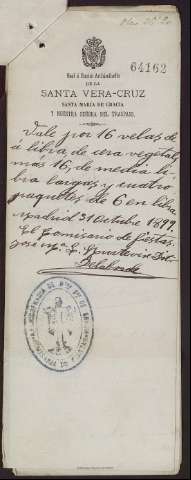 64162
Real é Ilustre Archicofradía
DE LA
SANTA VERA-CRUZ
SANTA MARÍA DE GRACIA
Y NUESTRA SEÑORA DEL TRASPASO.
Vale por 16 velas de
á libra de cera vegetal,
más 16, de media li
bra largas, y cuatro
paquetes de 6 en libra
Madrid 31 Octubre 1899.
El Comisario de fiestas.
José Mª G.